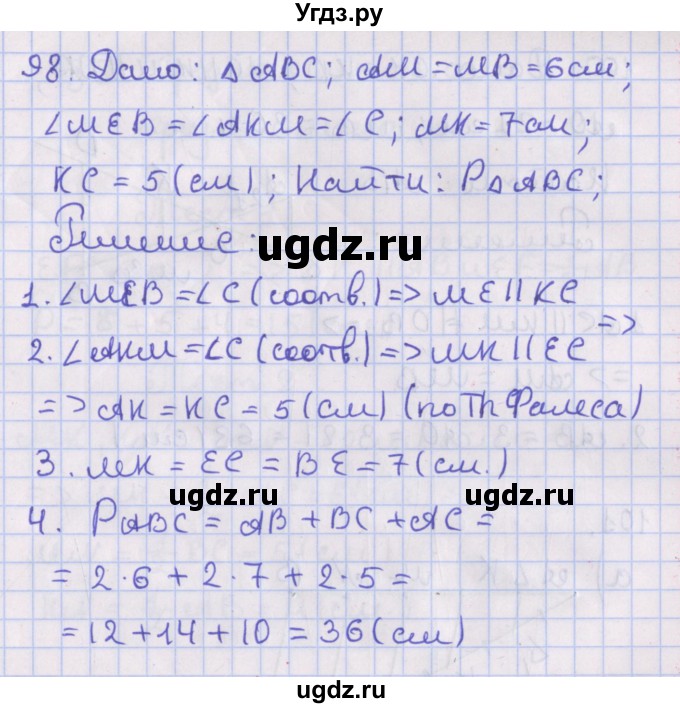 Угдз.ру
98. Дано: △ ABC; AM = MB = 6 см;
∠MEB = ∠AKM = ∠C; MK = 7 см;
KC = 5 (см); Найти: P△ABC;
Решение:
ugdz.ru
1. ∠MEB = ∠C (соотв.) => ME || KC
=>
2. ∠AKM = ∠C (соотв.) => MK || EC
=> AK = KC = 5 (см) (по Th Фалеса)
3. MK = EC = BE = 7 (см.)
ugdz.ru ugdz.ru
4. P△ABC = AB + BC + AC =
= 2·6 + 2·7 + 2·5 =
= 12 + 14 + 10 = 36 (см)
ugdz.ru
ugdz.ru